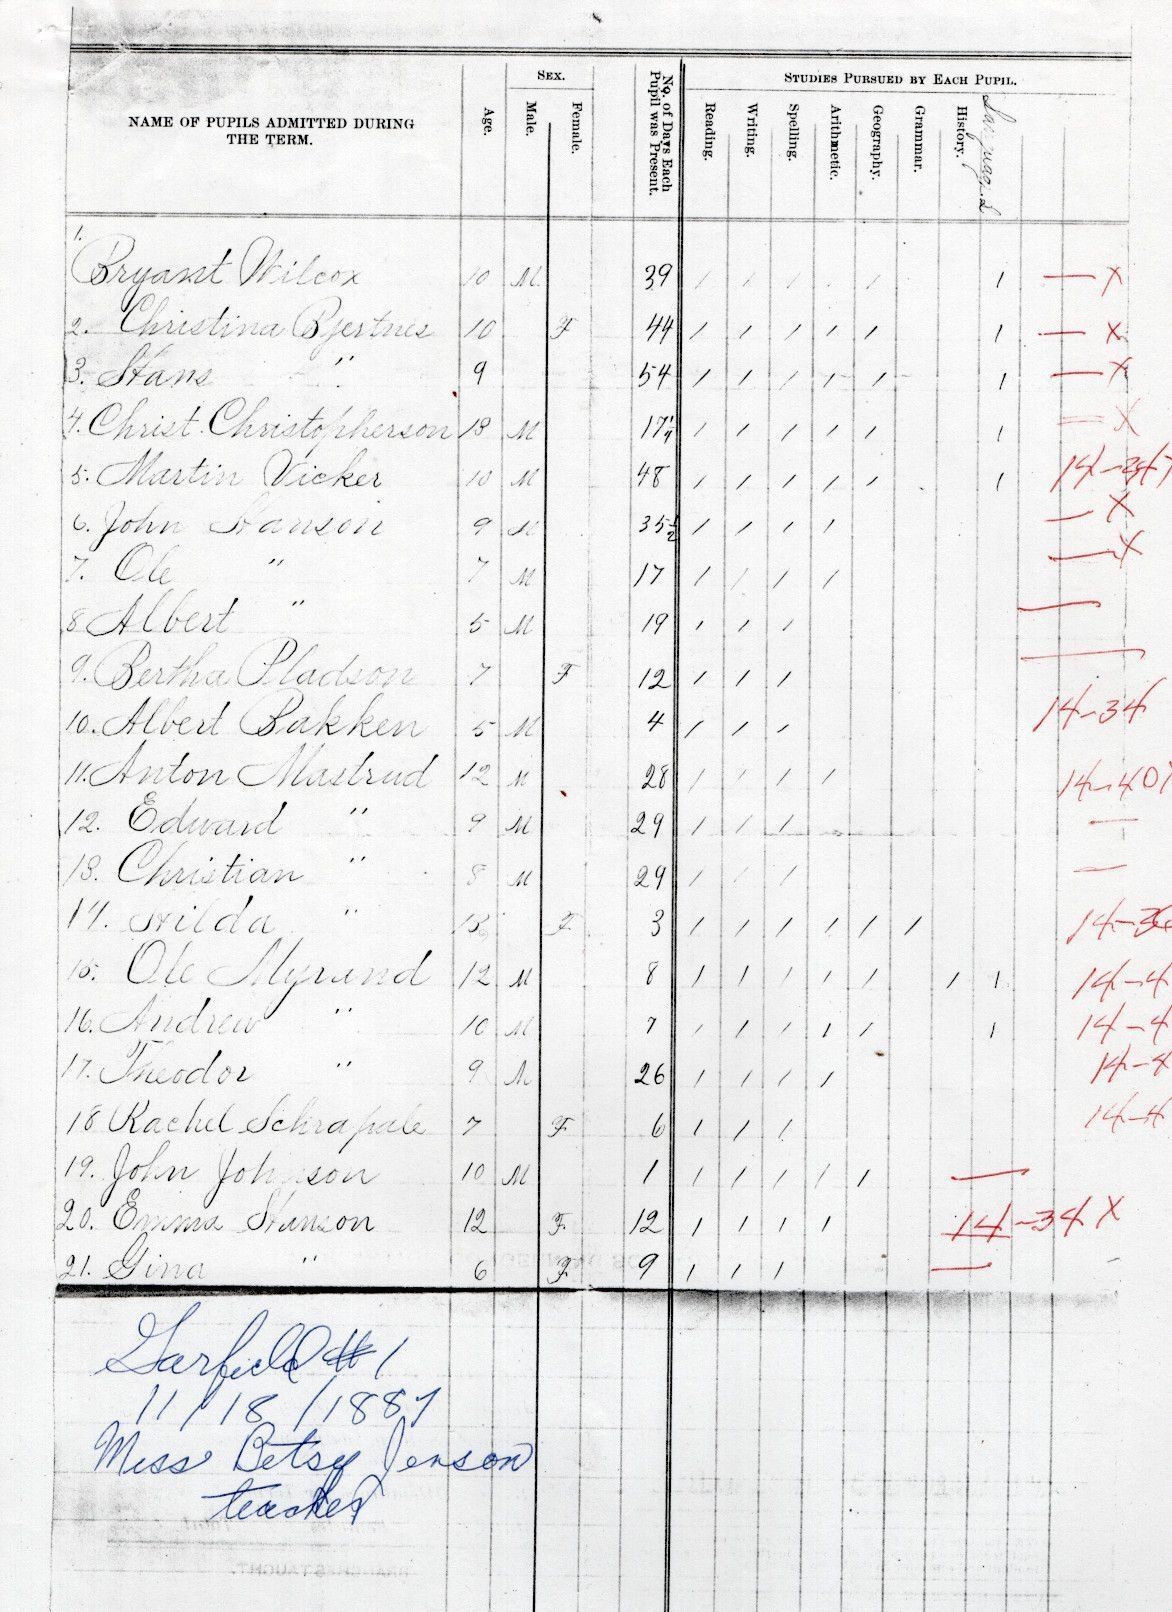 SEX. STUDIES PURSUED BY EACH PUPIL.
NAME OF PUPILS ADMITTED DURING THE TERM. Age. Male. Female. No. of Days Each Pupil was Present. Reading. Writing. Spelling. Arithmetic. Geography. Grammar. History. Language
1. Bryant Wilcox 10 M 39 / / / / / / — X
2. Christina Bjertnes 10 F 44 / / / / / / — X
3. Hans " 9 54 / / / / / / — X
4. Christ. Christopherson 13 M 17 / / / / / / — X
5. Martin Vicker 10 M 48 / / / / / / 14-
6. John Hanson 9 M 35 1/2 / / / / — X
7. Ole " 7 M 17 / / / / — X
8 Albert " 5 M 19 / / / —
9. Bertha Pladson 7 F 12 / / / —
10. Albert Bakken 5 M 4 / / / 14-34
11. Anton Mastrud 12 M 28 / / / / 14-40
12. Edward " 9 M 29 / / / —
13. Christian " 8 M 29 / / / —
14. Hilda " F 3 / / / / / / 14-
15. Ole Myrund 12 M 8 / / / / / / / 14-4
16. Andrew " 10 M 7 / / / / / / 14-4
17. Theodor " 9 M 26 / / / / 14-4
18 Rachel Schrapale 7 F 6 / / / 14-4
19. John Johnson 10 M 1 / / / / / —
20. Emma Hanson 12 F 12 / / / / 14-34 X
21. Gina " 6 F 9 / / / —
Garfield #1
11/18/1887
Miss Betsy Jenson
teacher